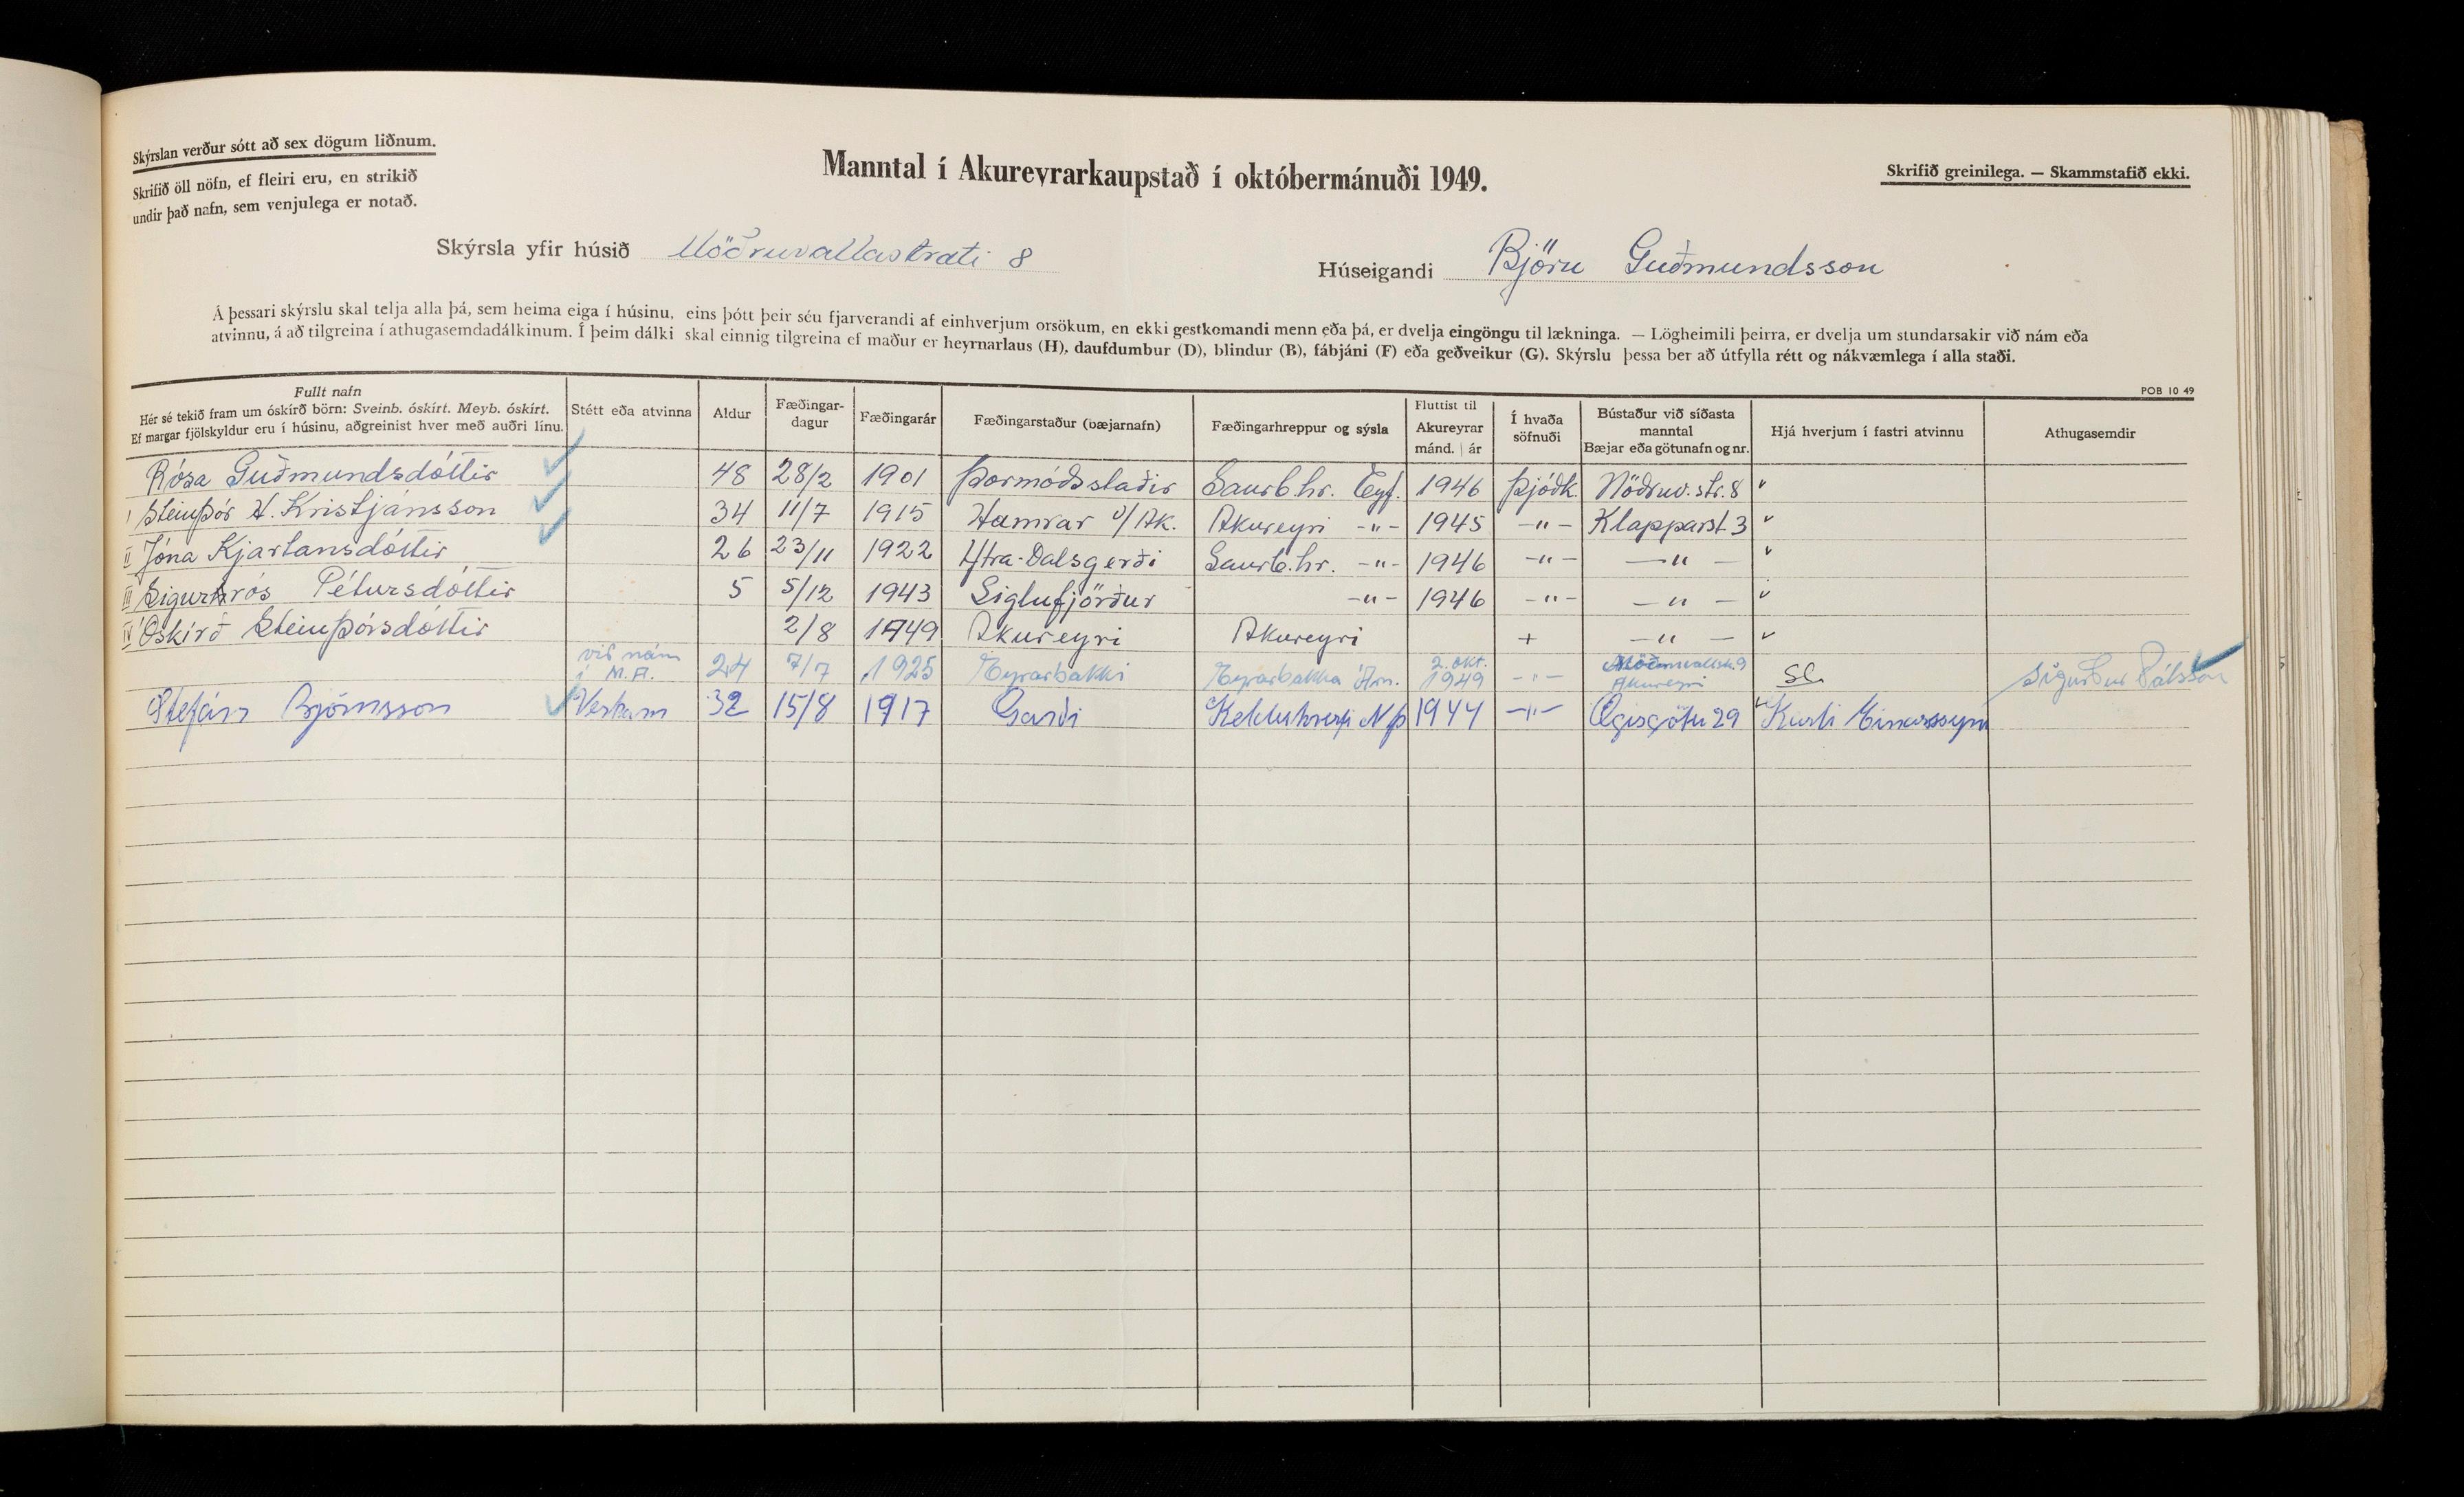 Skýrslan verður sótt að sex dögum liðnum.
Skrifið öll nöfn, ef fleiri eru, en strikið
undir það nafn, sem venjulega er notað.
Manntal í Akureyrarkaupstað í októbermánuði 1949.
Skrifið greinilega. — Skammstafið ekki.
Skýrsla yfir húsið Möðruvallastræti 8
Húseigandi Björn Guðmundsson
Á þessari skýrslu skal telja alla þá, sem heima eiga í húsinu, eins þótt þeir séu fjarverandi af einhverjum orsökum, en ekki gestkomandi menn eða þá, er dvelja eingöngu til lækninga. — Lögheimili þeirra, er dvelja um stundarsakir við nám eða
atvinnu, á að tilgreina í athugasemdadálkinum. Í þeim dálki skal einnig tilgreina ef maður er heyrnarlaus (H), daufdumbur (D), blindur (B), fábjáni (F) eða geðveikur (G). Skýrslu þessa ber að útfylla rétt og nákvæmlega í alla staði.
POB 10 49
Fullt nafn
Hér sé tekið fram um óskírð börn: Sveinb. óskírt. Meyb. óskírt.
Ef margar fjölskyldur eru í húsinu, aðgreinist hver með auðri línu.
Stétt eða atvinna
Aldur
Fæðingar-
dagur
Fæðingarár
Fæðingarstaður (bæjarnafn)
Fæðingarhreppur og sýsla
Fluttist til
Akureyrar
mánd. | ár
Í hvaða
söfnuði
Bústaður við síðasta
manntal
Bæjar eða götunafn og nr.
Hjá hverjum í fastri atvinnu
Athugasemdir
Rósa Guðmundsdóttir 48 28/2 1901 Þormóðsstaðir Saurb.hr. Eyf. 1946 Þjóðk. Möðruv.str. 8 "
I Steinþór H. Kristjánsson 34 11/7 1915 Hamrar v/Ak. Akureyri -"- 1945 -"- Klapparst. 3 "
II Jóna Kjartansdóttir 26 23/11 1922 Ytra-Dalsgerði Saurb.hr. -"- 1946 -"- -"- "
III Sigurrós Pétursdóttir 5 5/12 1943 Siglufjörður -"- 1946 -"- -"- "
IV Óskírð Steinþórsdóttir 2/8 1949 Akureyri Akureyri + -"- "
við nám
í M.A. 24 7/7 1925 Eyrarbakki Eyrarbakka Árn. 2. okt.
1949 -"- Akureyri Sigurður Pálsson
Stefán Björnsson 32 15/8 1917 Garði Kelduhverfi N.Þ 1944 -"- Ægisgötu 29 Karli Einarssyni